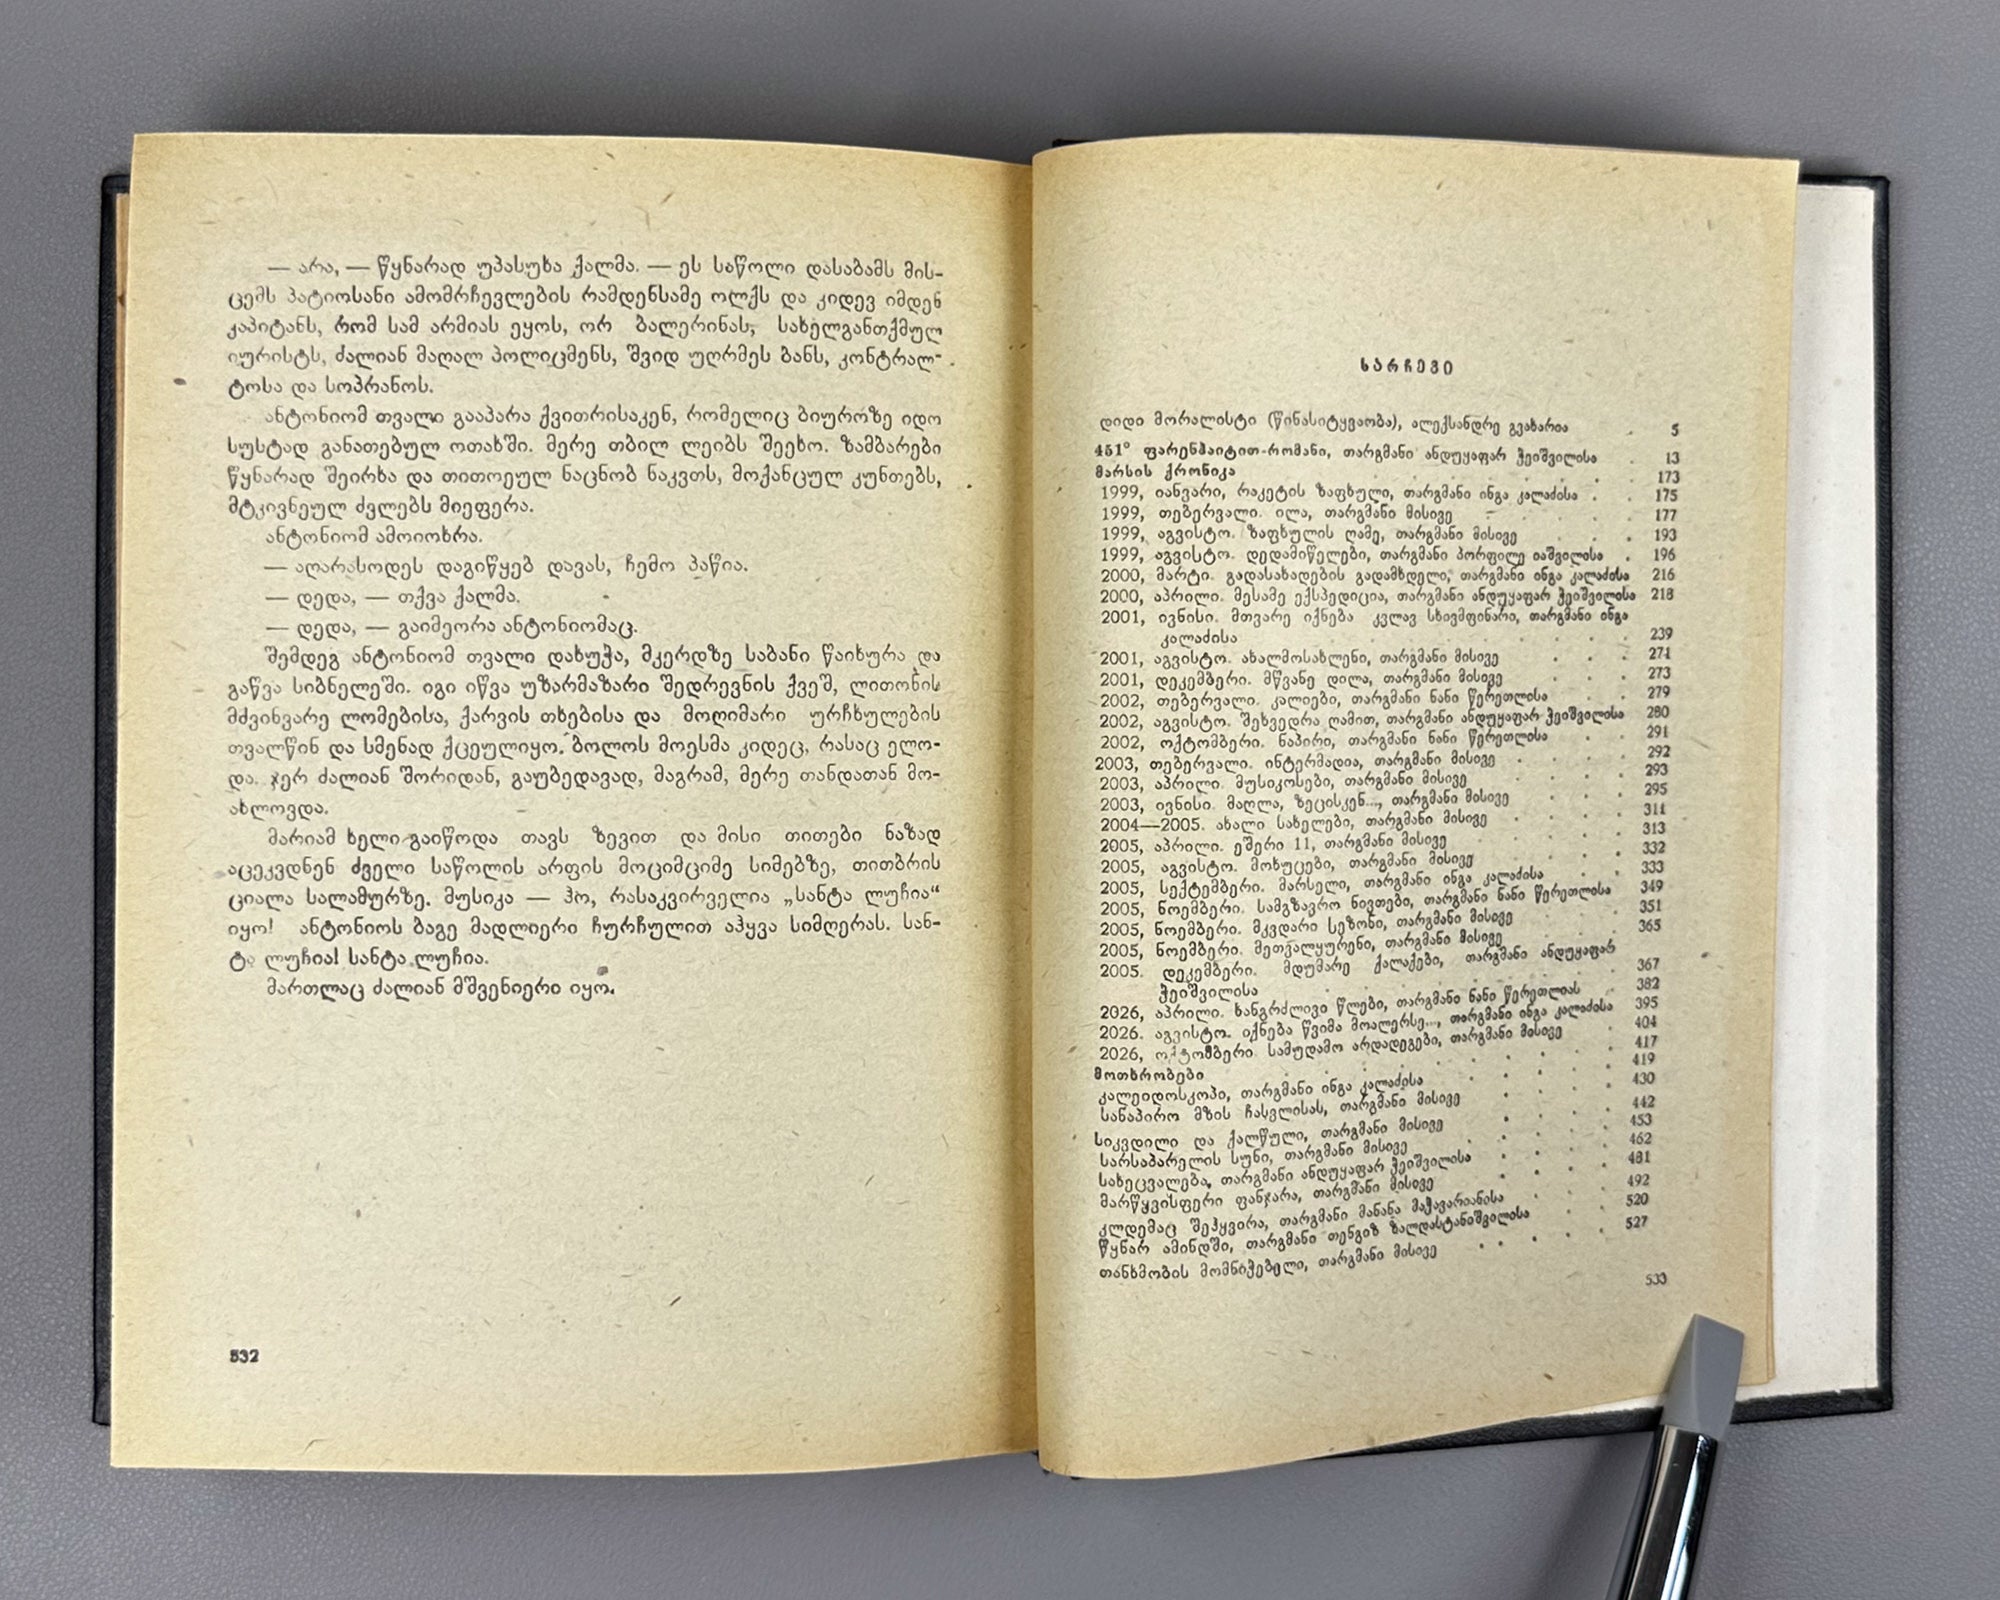 — არა, — წყნარად უპასუხა ქალმა. — ეს საწოლი დასაბამს მის-
ცემს პატიოსანი ამომრჩევლების რამდენსამე ოლქს და კიდევ იმდენ
კაპიტანს, რომ სამ არმიას ეყოს, ორ ბალერინას, სახელგანთქმულ
იურისტს, ძალიან მაღალ პოლიცმენს, შვიდ უღრმეს ბანს, კონტრალ-
ტოსა და სოპრანოს.
ანტონიომ თვალი გააპარა ქვითრისაკენ, რომელიც ბიუროზე იდო
სუსტად განათებულ ოთახში. მერე თბილ ლეიბს შეეხო. ზამბარები
წყნარად შეირხა და თითოეულ ნაცნობ ნაკვთს, მოქანცულ კუნთებს,
მტკივნეულ ძვლებს მიეფერა.
ანტონიომ ამოიოხრა.
— აღარასოდეს დაგიწყებ დავას, ჩემო პაწია.
— დედა, — თქვა ქალმა.
— დედა, — გაიმეორა ანტონიომაც.
შემდეგ ანტონიომ თვალი დახუჭა, მკერდზე საბანი წაიხურა და
გაწვა სიბნელეში. იგი იწვა უზარმაზარი შედრევნის ქვეშ, ლითონის
მძვინვარე ლომებისა, ქარვის თხებისა და მოღიმარი ურჩხულების
თვალწინ და სმენად ქცეულიყო. ბოლოს მოესმა კიდეც, რასაც ელო-
და. ჯერ ძალიან შორიდან, გაუბედავად, მაგრამ, მერე თანდათან მო-
ახლოვდა.
მარიამ ხელი გაიწოდა თავს ზევით და მისი თითები ნაზად
აცეკვდნენ ძველი საწოლის არფის მოციმციმე სიმებზე, თითბრის
ციალა სალამურზე. მუსიკა — ჰო, რასაკვირველია „სანტა ლუჩია“
იყო! ანტონიოს ბაგე მადლიერი ჩურჩულით აჰყვა სიმღერას. სან-
ტა ლუჩია! სანტა ლუჩია.
მართლაც ძალიან მშვენიერი იყო.
532
სარჩევი
დიდი მორალისტი (წინასიტყვაობა), ალექსანდრე გვახარია . 5
451° ფარენჰაიტით-რომანი, თარგმანი ანდუყაფარ ჭეიშვილისა . 13
მარსის ქრონიკა . . . . . 173
1999, იანვარი, რაკეტის ზაფხული, თარგმანი ინგა კალაძისა . . 175
1999, თებერვალი. ილა, თარგმანი მისივე . . . . 177
1999, აგვისტო. ზაფხულის ღამე, თარგმანი მისივე . . . 193
1999, აგვისტო. დედამიწელები, თარგმანი პორფილე იაშვილისა . 196
2000, მარტი. გადასახადების გადამხდელი, თარგმანი ინგა კალაძისა 216
2000, აპრილი. მესამე ექსპედიცია, თარგმანი ანდუყაფარ ჭეიშვილისა 218
2001, ივნისი. მთვარე იქნება კვლავ სხივმფინარი, თარგმანი ინგა
კალაძისა . . . . . . 239
2001, აგვისტო. ახალმოსახლენი, თარგმანი მისივე . . . 271
2001, დეკემბერი. მწვანე დილა, თარგმანი მისივე . . . 273
2002, თებერვალი. კალიები, თარგმანი ნანი წერეთლისა . . 279
2002, აგვისტო. შეხვედრა ღამით, თარგმანი ანდუყაფარ ჭეიშვილისა 280
2002, ოქტომბერი. ნაპირი, თარგმანი ნანი წერეთლისა . . 291
2003, თებერვალი. ინტერმადია, თარგმანი მისივე . . . . 292
2003, აპრილი. მუსიკოსები, თარგმანი მისივე . . . 293
2003, ივნისი. მაღლა, ზეცისკენ..., თარგმანი მისივე . . . 295
2004—2005. ახალი სახელები, თარგმანი მისივე . . . . 311
2005, აპრილი. ეშერი 11, თარგმანი მისივე . . . . 313
2005, აგვისტო. მოხუცები, თარგმანი მისივე . . . . 332
2005, სექტემბერი. მარსელი, თარგმანი ინგა კალაძისა . . 333
2005, ნოემბერი. სამგზავრო ნივთები, თარგმანი ნანი წერეთლისა 349
2005, ნოემბერი. მკვდარი სეზონი, თარგმანი მისივე . . . 351
2005, ნოემბერი. მეთვალყურენი, თარგმანი მისივე . . . 365
2005. დეკემბერი. მდუმარე ქალაქები, თარგმანი ანდუყაფარ
ჭეიშვილისა . . . . . . 367
2026, აპრილი. ხანგრძლივი წლები, თარგმანი ნანი წერეთლიას . 382
2026. აგვისტო. იქნება წვიმა მოალერსე..., თარგმანი ინგა კალაძისა 395
2026, ოქტომბერი. სამუდამო არდადეგები, თარგმანი მისივე . 404
მოთხრობები . . . . . 417
კალეიდოსკოპი, თარგმანი ინგა კალაძისა . . . . 419
სანაპირო მზის ჩასვლისას, თარგმანი მისივე . . . . 430
სიკვდილი და ქალწული, თარგმანი მისივე . . . . 442
სარსაპარელის სუნი, თარგმანი მისივე . . . . 453
სახეცვალება, თარგმანი ანდუყაფარ ჭეიშვილისა . . . . 462
მარწყვისფერი ფანჯარა, თარგმანი მისივე . . . . 481
კლდემაც შეჰყვირა, თარგმანი მანანა მაჭავარიანისა . . . 492
წყნარ ამინდში, თარგმანი თენგიზ ზალდასტანიშვილისა . . 520
თანხმობის მომნიჭებელი, თარგმანი მისივე . . . . 527
533